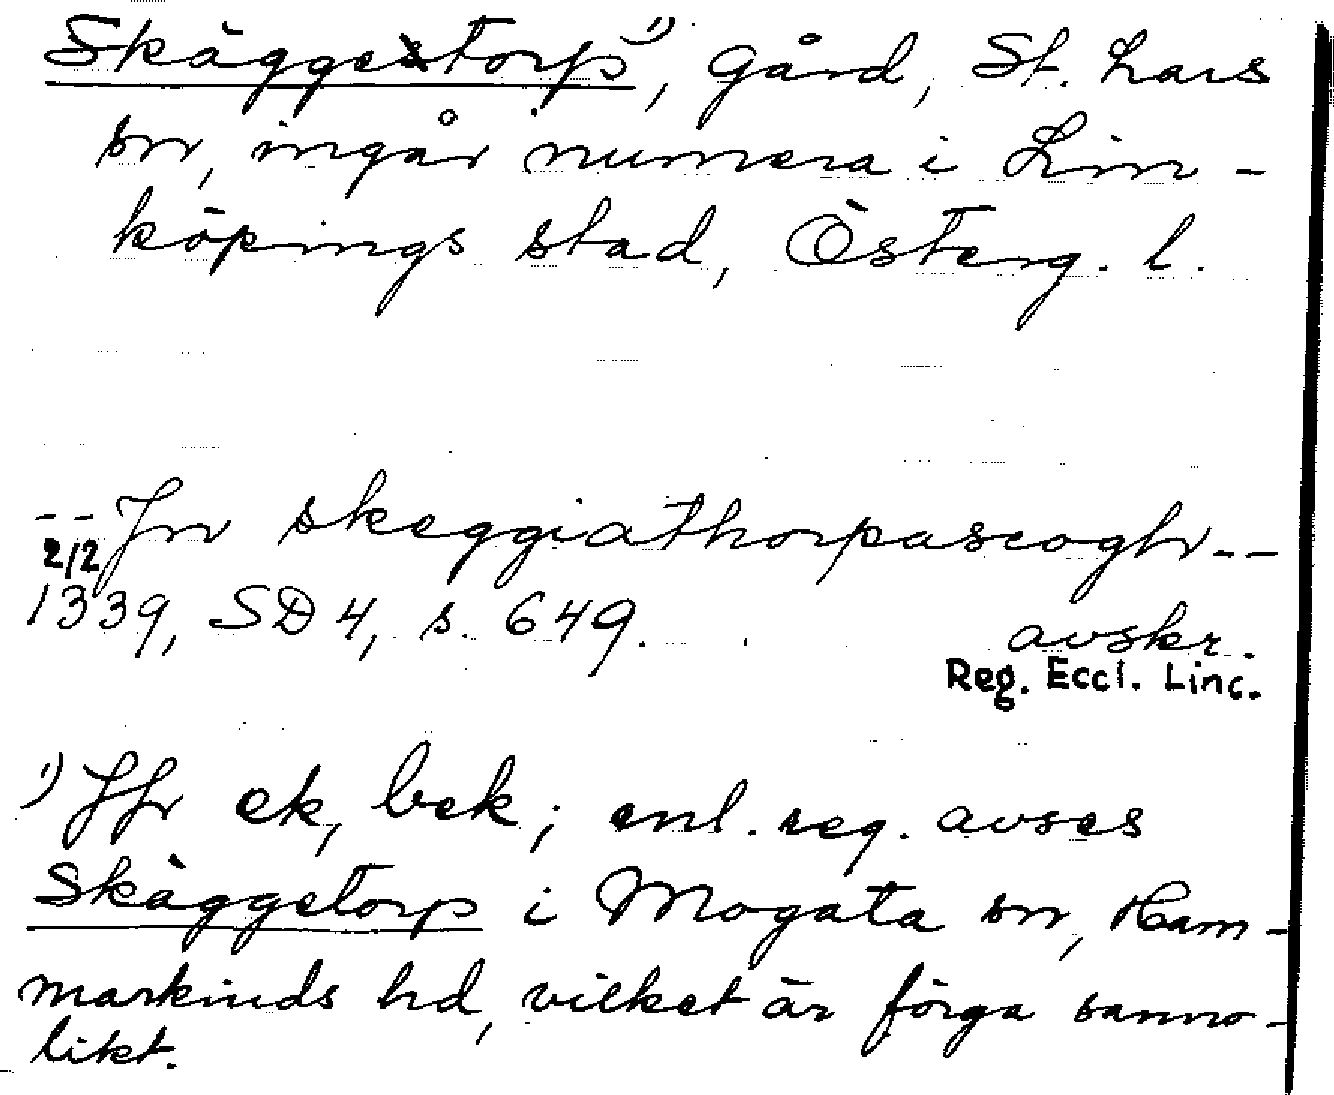 Skäggestorp¹⁾, gård, St. Lars
sn, ingår numera i Lin-
köpings stad, Österg. l.
-- Jn skeggiathorpascogh --
2/2
1339, SD 4, s. 649. avskr.
Reg. Eccl. Linc.
¹⁾ Jfr ek, bek; enl. reg. avses
Skäggetorp i Mogata sn, Ham-
markinds hd, vilket är föga sanno-
likt.